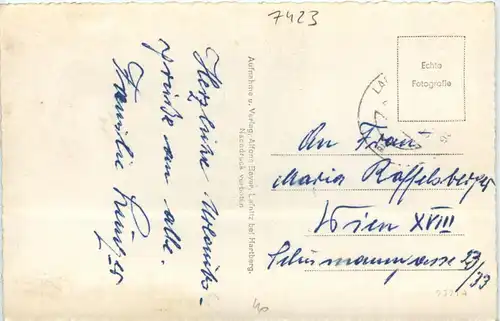 7423
Herzliche Urlaubs-
grüße an alle.
Familie
Aufnahme u. Verlag: Alfons Bauer, Lafnitz bei Hartberg.
Nachdruck verboten
Echte
Fotografie
An Frau
Maria Raffelsberger
Wien XVIII
Schumanngasse 23/33